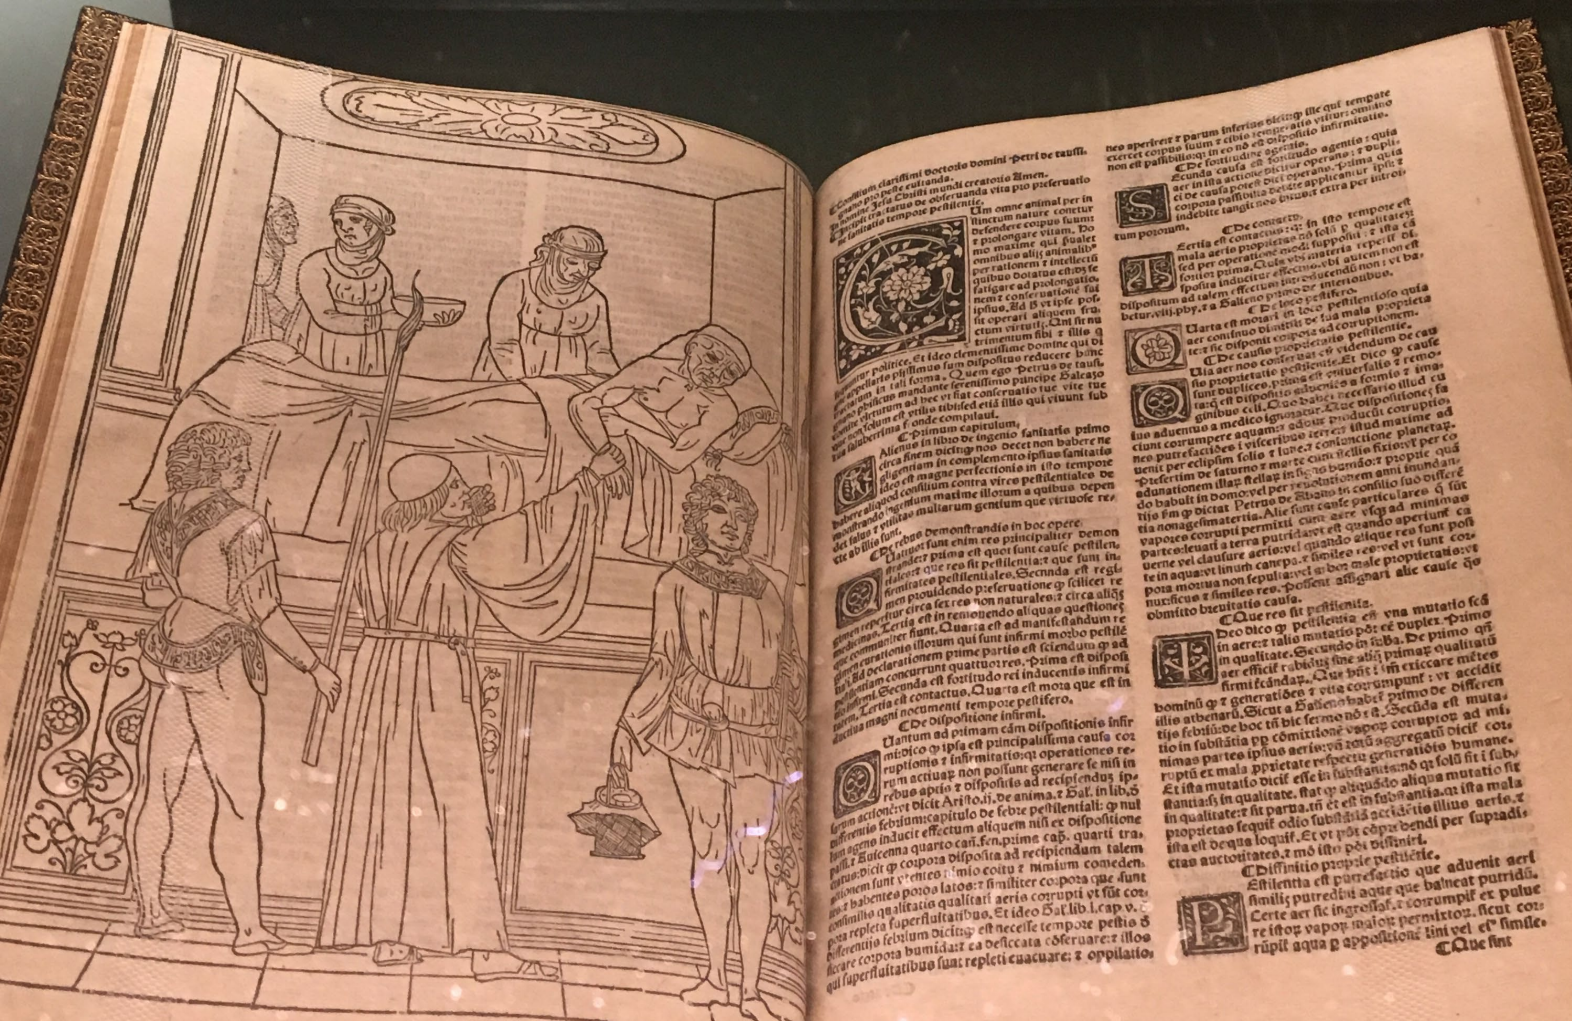 Consilium clarissimi doctoris domini Petri de taussi.
gnano pro peste euitanda.
In nomine Jesu Christi mundi creatoris Amen.
Incipit tractatus de obseruanda vita pro preseruatio
ne sanitatis tempore pestilentie.
CUm omne animal per in
stinctum nature conetur
defendere corpus suum:
⁊ prolongare vitam. Ho
mo maxime qui pualet
omnibus aliis animalibꝰ
per rationem ⁊ intellectū
quibus dotatus est: oꝫ se
fatigare ad prolongatio.
nem ⁊ conseruationē sui
ipsius. Ad ꝗ vt ipse pos.
sit operari aliquem fru.
ctum virtutis. Qui sit nu
trimentum sibi ⁊ illis ꝗ
politice. Et ideo clementissime domine qui di
piissimus sum dispositus reducere hunc
tractatum in tali forma. Quem ego Petrus de tausi.
gnano phisicus mandante serenissimo principe Galeazo
virtutum ad hec vt fiat conseruatio tue vite tue
que non solum est vtilis tibi sed etiā illis qui viuunt sub
tua saluberrima fronde compilaui.
Primum capitulum.
GAlienus in libro de ingenio sanitatis primo
circa finem dicit ꝙ nos decet non habere ne
gligentiam in complemento ipsius sanitatis
ideo est magne perfectionis in isto tempore
habere aliquod consilium contra vires pestilentiales de
monstrando ingenium maxime illorum a quibus depen
det salus ⁊ vtilitas multarum gentium que virtuose re.
cte ab illis sunt.
De rebus demonstrandis in hoc opere.
QUattuor sunt enim res principaliter demon
strande: ⁊ prima est quot sunt cause pestilen.
tiales: ⁊ que res sit pestilentia: ⁊ que sunt in.
firmitates pestilentiales. Secunda est regi.
men prouidendo preseruatione ꝙ scilicet re
gimen reperitur circa sex res non naturales: ⁊ circa aliqs
medicinas. Tertia est in remouendo aliquas questiones
que communiter fiunt. Quarta est ad manifestandum re
gimen curationis istorum qui sunt infirmi morbo pestilē
tiali. Ad declarationem prime partis est sciendum ꝙ ad
pestilentiam concurrunt quattuor res. Prima est disposi
tio infirmi. Secunda est fortitudo rei inducentis infirmi
tatem. Tertia est contactus. Quarta est mora que est in
ductiua magni nocumenti tempore pestifero.
De dispositione infirmi.
QUantum ad primam cām dispositionis infir
mi: dico ꝙ ipsa est principalissima causa cor
ruptionis ⁊ infirmitatis: qꝛ operationes re.
rum actiuaꝝ non possunt generare se nisi in
rebus aptis ⁊ dispositis ad recipiendum ip.
sarum actionē: vt dicit Aristo. ij. de anima. ⁊ Gal̄. in lib. ō
differentiis febrium: capitulo de febre pestilentiali: ꝙ nul
lum agens inducit effectum aliquem nisi ex dispositione
passi. ⁊ Auicenna quarto can. fen. prima cap. quarti tra.
ctatus: Dicit ꝙ corpora disposita ad recipiendum talem
actionem sunt vtentes nimio coitu ⁊ nimium comeden.
tes: ⁊ habentes poros latos: ⁊ similiter corpora que sunt
consimilis qualitatis qualitati aeris corrupti vt sūt cor.
pora repleta superfluitatibus. Et ideo Gal̄. lib. i. cap. v. ō
differentiis febrium dicit ꝙ est necesse tempore pestis ō
siccare corpora humida: ⁊ ea desiccata cōseruare: ⁊ illos
qui superfluitatibus sunt repleti euacuare: ⁊ oppilatio.
nes aperire: ⁊ parum inferius dicit ꝙ ille qui tempate
exercet corpus suum ⁊ cibis temperatis vtitur: omnino
non est passibilis: qꝛ in eo nō est dispositio infirmitatis.
De fortitudine agentis.
SEcunda causa est fortitudo agentis: ⁊ quia
aer in ista actione dicitur operans: ⁊ dupli.
ci de causa potest dici operans. Prima quia
corpora passibilia debite applicantur ipsi: ⁊
indebite tangit nos intus: ⁊ extra per introi
tum pororum.
De contactu.
TErtia est contactus: qꝛ in isto tempore est
mala aeris proprietas nō solū ꝑ qualitates:
sed per operationē modi suppositi: ⁊ ista cā
fortior prima. Quia vbi materia reperit di.
sposita inducitur effectus. vbi autem non est
dispositum ad talem effectum introducendū non: vt ha.
betur. viij. phy. ⁊ a Galieno primo de interioribus.
De loco pestifero.
QUarta est morari in loco pestilentioso quia
aer continuo
te: ⁊ sic disponit corpora ad corruptionem.
De causis proprietatis pestilentie.
QUia aer nos conseruat est videndum de cau
sis proprietatis pestilentie. Et dico ꝙ cause
sunt duplices. prima est vniuersalis ⁊ remo.
ta: ꝗ est dispositio habentes a formis ⁊ ima.
ginibus celi. Que habet necessario illud cu
ius aduentus a medico ignoratur. Que dispositiones fa
ciunt corrumpere aquam: ⁊ aerem producunt corruptio
nes putrefactiōes i visceribus terre: ⁊ istud maxime ad
uenit per eclipsim solis ⁊ lune: ⁊ coniunctione planetaꝝ.
Presertim de saturno ⁊ marte cum stellis fixis: vt per co
adunationem illaꝝ stellaꝝ in signis humidis: ⁊ proprie quā
do habuit in domo: vel per reuolutionem anni inundan.
tijs ſm ꝙ dictat Petrus de Abano in consilio suo differē
tia nonagesimatertia. Alie sunt cause particulares ꝗ sūt
vapores corrupti permixti cum aere vsqꝫ ad minimas
partes: leuati a terra putrida: vt est quando aperiunt ca
uerne vel clausure aeris: vel quando alique res sunt posi
te in aqua: vt linum canepa. ⁊ similes res: vel vt sunt cor.
pora mortua non sepulta: vel arbor male proprietatis: vt
nucificus ⁊ similes res. Possent assignari alie cause ꝗs
obmitto breuitatis causa.
Que res sit pestilentia.
IDeo dico ꝙ pestilentia est vna mutatio scā
in aere: ⁊ talis mutatio pōt eē duplex. Primo
in qualitate. Secundo in suba. De primo qn̄
aer efficit rabidus sine aliqͣ primaꝝ qualitatū
firmi scāndaꝝ. Que hn̄t ī ipsi exiccare mētes
hominū ꝙ ⁊ generatiōes ⁊ vite corrumpunt: vt accidit
illis athenarū. Sicut a Galieno habet primo de differen
tijs febriū: de hoc tn̄ hic sermo nō ē. Secūda est muta.
tio in substātia ꝓp cōmixtionē vapoꝝ corruptoꝝ ad mi.
nimas partes ipsius aeris: vn̄ totū aggregatū dicit cor.
ruptū ex mala ꝓprietate respectu generatiōis humane.
Et ista mutatio dicit esse in substantia: nō ꝙ solū sit ī sub.
stantia: sꝫ in qualitate. stat ꝙ aliquādo aliqua mutatio sit
in qualitate: ⁊ sit parua. tn̄ et est in substantia. qꝛ ista mala
proprietas sequit odio substātiā accidētis illius aeris. ⁊
ista est de qua loquit. Et vt pōt cōprehendi per supradi.
ctas auctoritates. ⁊ mō isto pōt diffiniri.
Diffinitio proprie pestilētie.
PEstilentia est putrefactio que aduenit aeri
similis putredini aque que balneat putridū.
Certe aer sic ingrossat. ⁊ corrumpit ex pulue
re istoꝝ vapoꝝ maioꝝ permixtoꝝ. sicut cor.
rūpit aqua ꝑ appositionē lini vel ei simile.
Que sint